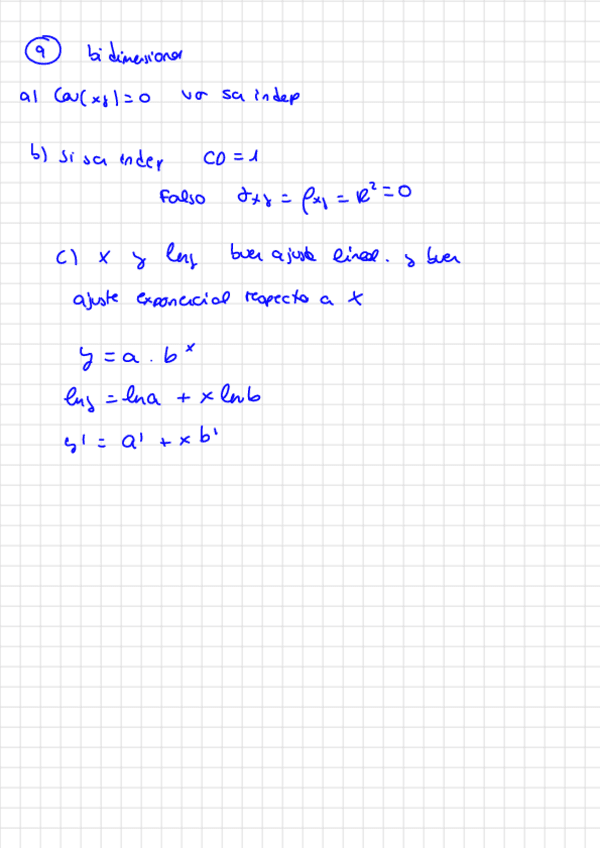 9 bidimensional
a) Cov(xy)=0 va sa indep
b) Si sa indep CD = 1
Falso σxy = ρxy = R² = 0
c) x y lny buen ajuste lineal. y buen
ajuste exponencial respecto a x
y = a . b^x
lny = lna + x lnb
y' = a' + x b'